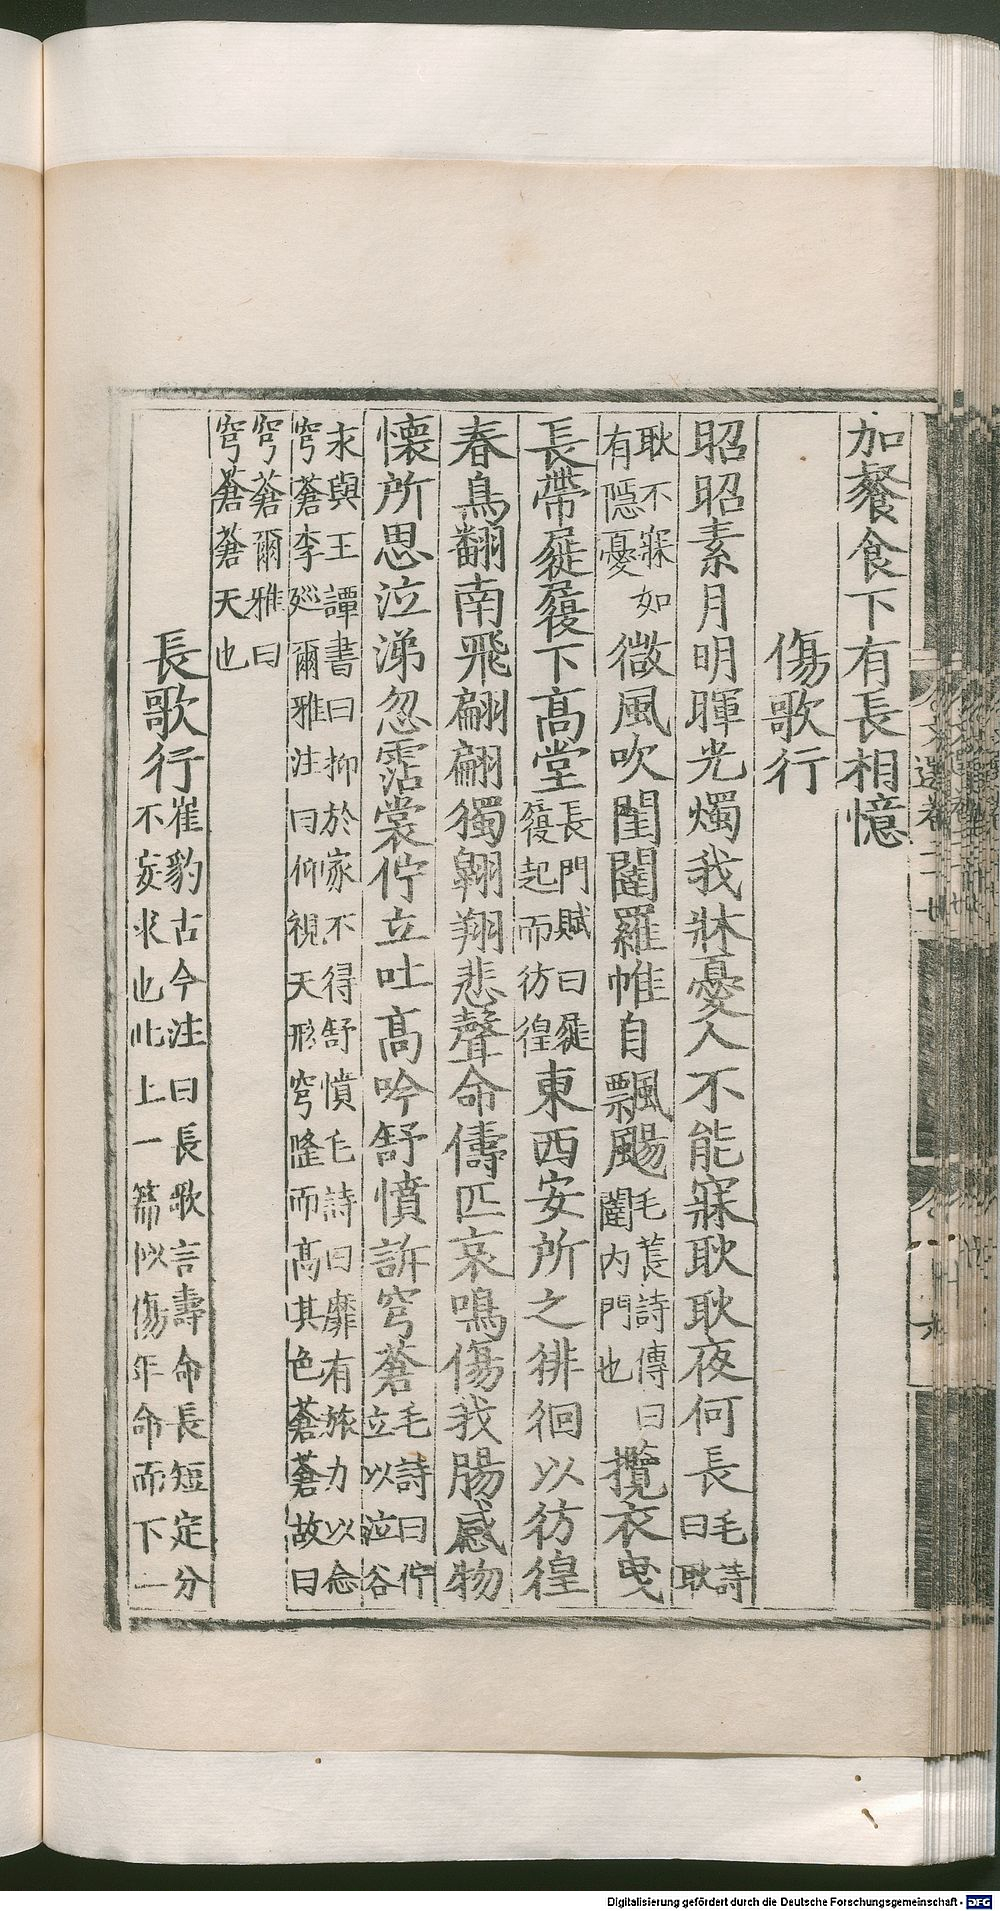 加餐食下有長相憶
傷歌行
昭昭素月明暉光燭我牀憂人不能寐耿耿夜何長毛詩曰耿
耿不寐如有隱憂微風吹閨闥羅帷自飄颺毛萇詩傳曰闥內門也攬衣曳
長帶屣履下高堂長門賦曰屣履起而彷徨東西安所之徘徊以彷徨
春鳥翻南飛翩翩獨翱翔悲聲命儔匹哀鳴傷我腸感物
懷所思泣涕忽霑裳佇立吐高吟舒憤訴穹蒼毛詩曰佇立以泣谷
永與王譚書曰抑於家不得舒憤毛詩曰靡有旅力以念穹蒼李巡爾雅注曰仰視天形穹隆而高其色蒼蒼故曰
穹蒼爾雅曰穹蒼蒼天也
長歌行崔豹古今注曰長歌言壽命長短定分不妄求也此上一篇似傷年命而下一
Digitalisierung gefördert durch die Deutsche Forschungsgemeinschaft - DFG